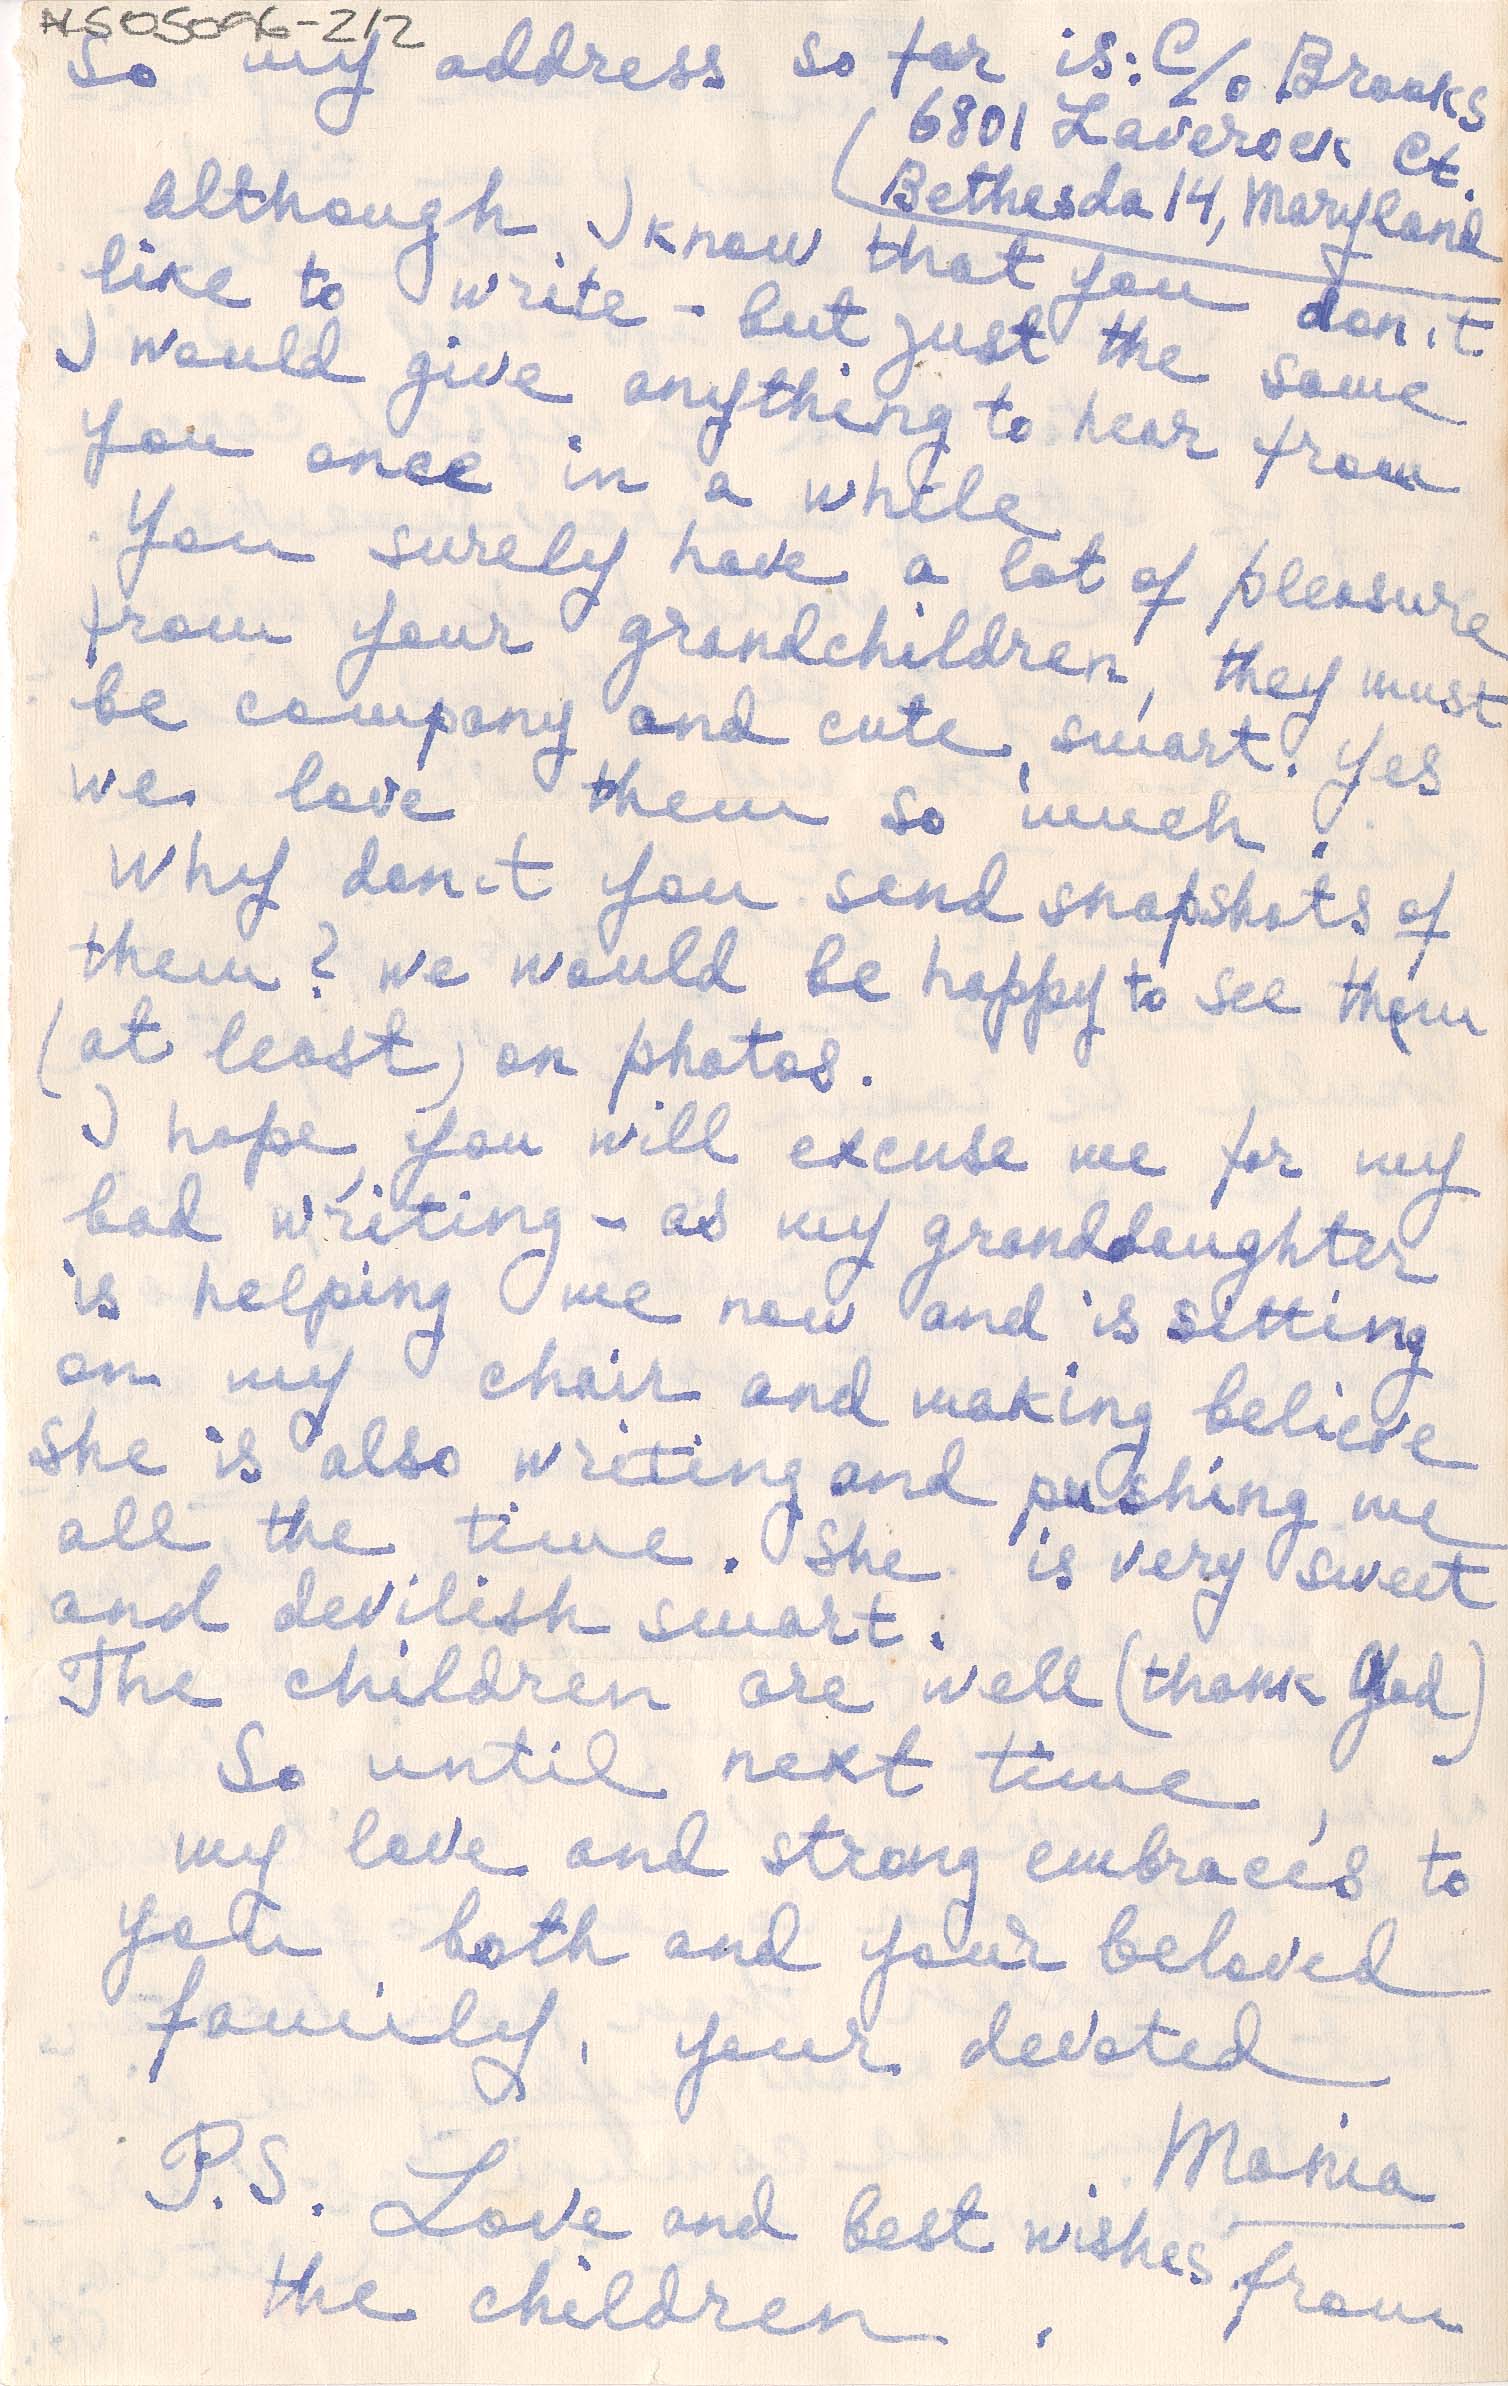 NS05096-2/2
So my address so far is: C/o Brooks
6801 Laverock Ct.
Bethesda 14, Maryland
although I know that you don't
like to write - but just the same
I would give anything to hear from
you once in a while
You surely have a lot of pleasure
from your grandchildren, they must
be company and cute, smart. Yes
we love them so much.
Why don't you send snapshots of
them? We would be happy to see them
(at least) on photos.
I hope, you will excuse me for my
bad writing - as my granddaughter
is helping me now and is sitting
on my chair and making believe
she is also writing and pushing me
all the time. She is very sweet
and devilish smart.
The children are well (thank God)
So until next time,
my love and strong embraces to
you both and your beloved
family, your devoted
Mania
P.S. Love and best wishes from
the children.